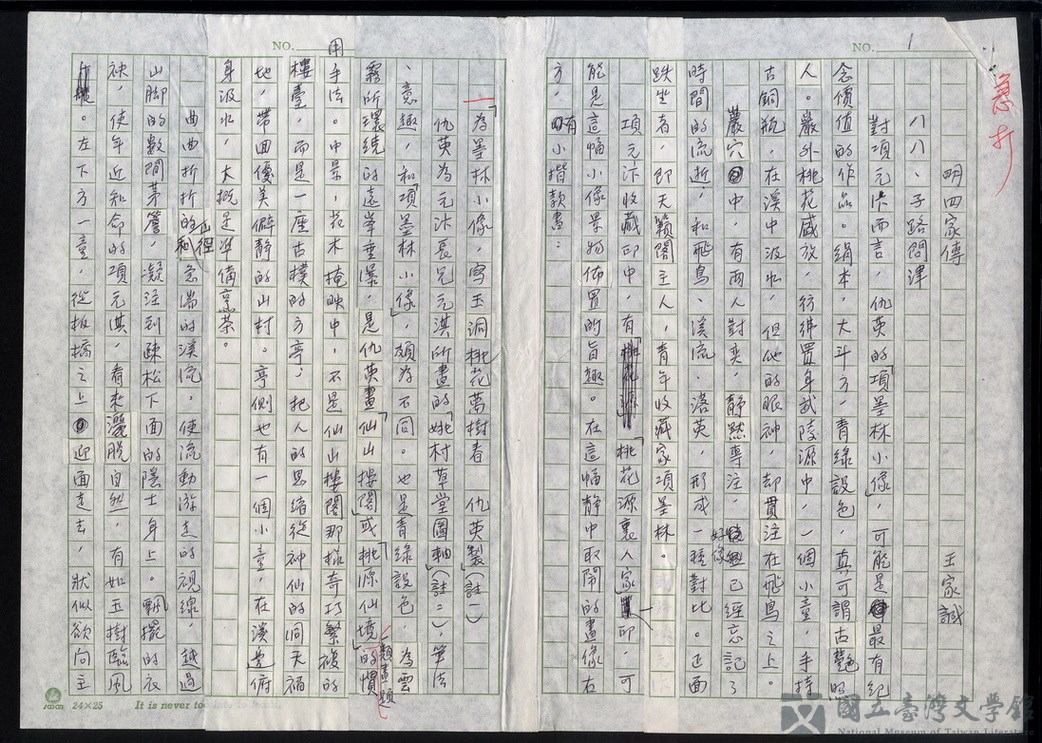 NO. 1
急打
明四家傳
王家誠
八八、子路問津
對項元汴而言，仇英的「項墨林小像」，可能是最有紀
念價值的作品。絹本，大斗方，青綠設色，真可謂古艷照
人。巖外桃花盛放，彷彿置身武陵源中，一個小童，手持
古銅瓶，在溪中汲水，但他的眼神，却貫注在飛鳥之上。
巖穴中，有兩人對奕，靜默專注，好像已經忘記了
時間的流逝，和飛鳥、溪流、落英，形成一種對比。正面
趺坐者，即天籟閣主人，青年收藏家項墨林。
項元汴收藏印中，有「桃花源裏人家」印，可
能是這幅小像景物佈置的所旨趣。在這幅靜中取鬧的畫像右
方，有小楷款書：
NO.
「為墨林小像，寫玉洞桃花萬樹春　仇英製」（註一）
仇英為元汴長兄元淇所畫的「姚村草堂圖軸」（註二），筆法
、意趣，和「項墨林小像」，頗為不同。也是青綠設色，為雲
霧所環繞的遠峯垂瀑，是仇英畫「仙山樓閣」或「桃源仙境」類畫題的慣
用手法。中景，花木掩映中，不是仙山樓閣那樣奇巧繁複的
樓臺，而是一座古樸的方亭；把人的思緒從神仙的洞天福
地，帶回優美僻靜的山村。亭側也有一個小童，在溪邊俯
身汲水，大概是準備烹茶。
曲曲折折的山徑和急湍的溪流，使流動游走的視線，越過
山脚的數間茅簷，凝注到踈松下面的隱士身上。飄擺的衣
袂，使年近知命的項元淇，看來灑脫自然，有如玉樹臨風
。左下方一童，從板橋之上迎面走去，狀似欲向主
24×25
It is never too
國立臺灣文學館
National Museum of Taiwan Literature